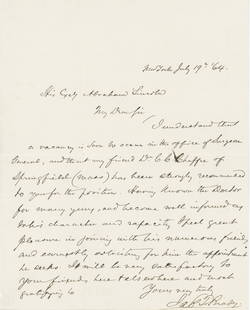 New York July 19th '64.
His Excy Abraham Lincoln
My Dear Sir
I understand that
a vacancy is soon to occur in the office of Surgeon
General, and that my friend Dr C C Chaffee of
Springfield (Mass) has been strongly recommended
to you for the position. Having known the Doctor
for many years, and become well informed
his character and capacity I feel great
pleasure in joining with his numerous friends
and earnestly soliciting for him the appointment
he seeks. It will be very satisfactory to
your friends here & elsewhere and most
gratifying to
Yours very truly
Jas. T. Brady